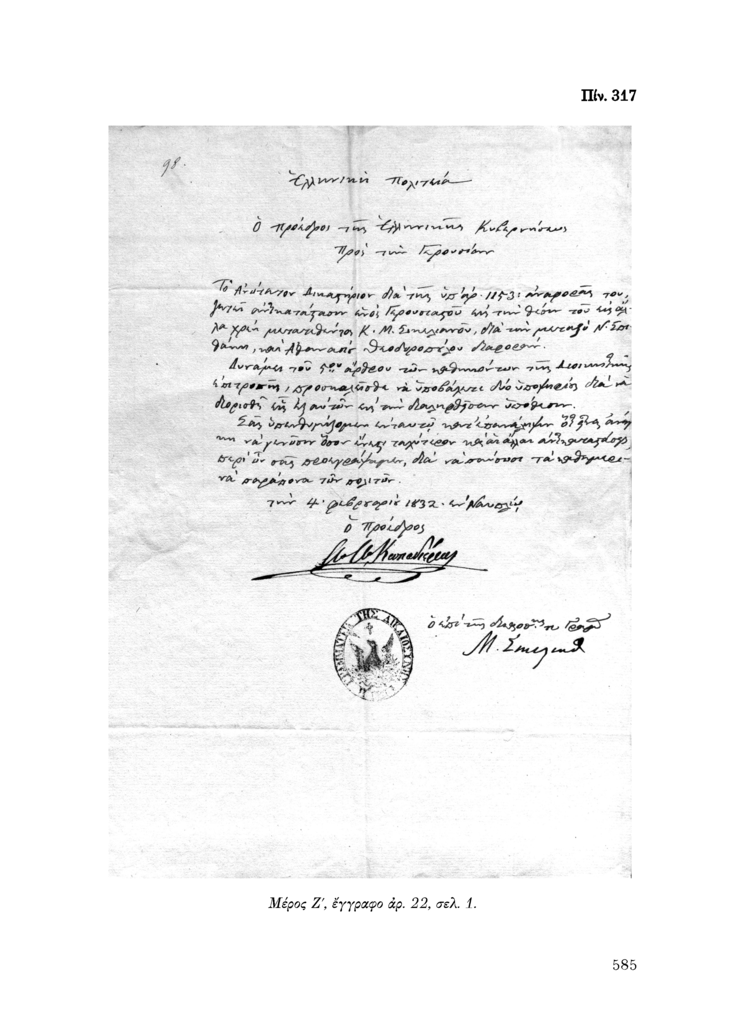 Πίν. 317
98.
Ἑλληνικὴ Πολιτεία
Ὁ Πρόεδρος τῆς Ἑλληνικῆς Κυβερνήσεως
Πρὸς τὴν Γερουσίαν
Τὸ Ἀνώτατον Δικαστήριον διὰ τῆς ὑπ' ἀρ. 1153: ἀναφορᾶς του,
ζητεῖ ἀντικατάστασιν ἑνὸς Γερουσιαστοῦ εἰς τὴν θέσιν τοῦ εἰς ἄλ-
λα χρέη μετατεθέντος Κ. Μ. Σικελιανοῦ, διὰ τὴν μεταξὺ Ν.
καὶ Ἀθανασίου Θεοδωροπούλου διαφοράν.
Δυνάμει τοῦ 5ου ἄρθρου τῶν καθηκόντων τῆς Διοικητικῆς
ἐπιτροπῆς, προσκαλεῖσθε νὰ ὑποβάλετε δύο ὑποψηφίους διὰ νὰ
διορισθῇ εἷς ἐξ αὐτῶν εἰς τὴν διαληφθεῖσαν ὑπόθεσιν.
Σᾶς ὑπενθυμίζομεν ἐνταυτῷ κατ' ἐπανάληψιν ὅτι εἶναι ἀνάγ-
κη νὰ γένωσιν ὅσον ἔνεστι ταχύτερον καὶ αἱ ἄλλαι ἀντικαταστάσεις,
περὶ ὧν σᾶς προεγράψαμεν, διὰ νὰ παύσωσι τὰ καθημερι-
νὰ παράπονα τῶν πολιτῶν.
τὴν 4 φεβρουαρίου 1832. ἐν Ναυπλίῳ
ὁ Πρόεδρος
Α. Α. Καποδίστριας
ὁ ἐπὶ τῆς Δικαιοσ: Γραμ
Μ. Σικελιαν
Η ΓΡΑΜΜΑΤΕΙΑ ΤΗΣ ΔΙΚΑΙΟΣΥΝΗΣ
Μέρος Ζ', ἔγγραφο ἀρ. 22, σελ. 1.
585